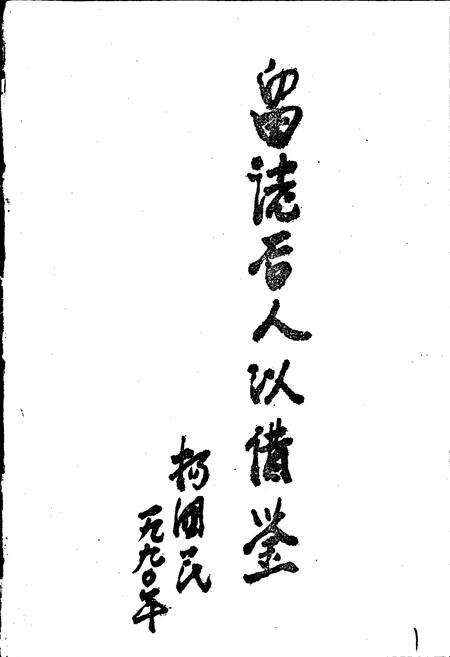 留誌后人以借鉴
国民
一九九〇年